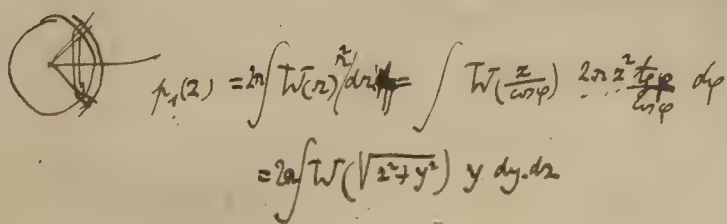 p₁(z) = 2π∫ W(r) r² dr = ∫ W(z/cos φ) 2π z² tg φ/cos φ dφ
= 2π∫ W(√(z²+y²)) y dy. dz